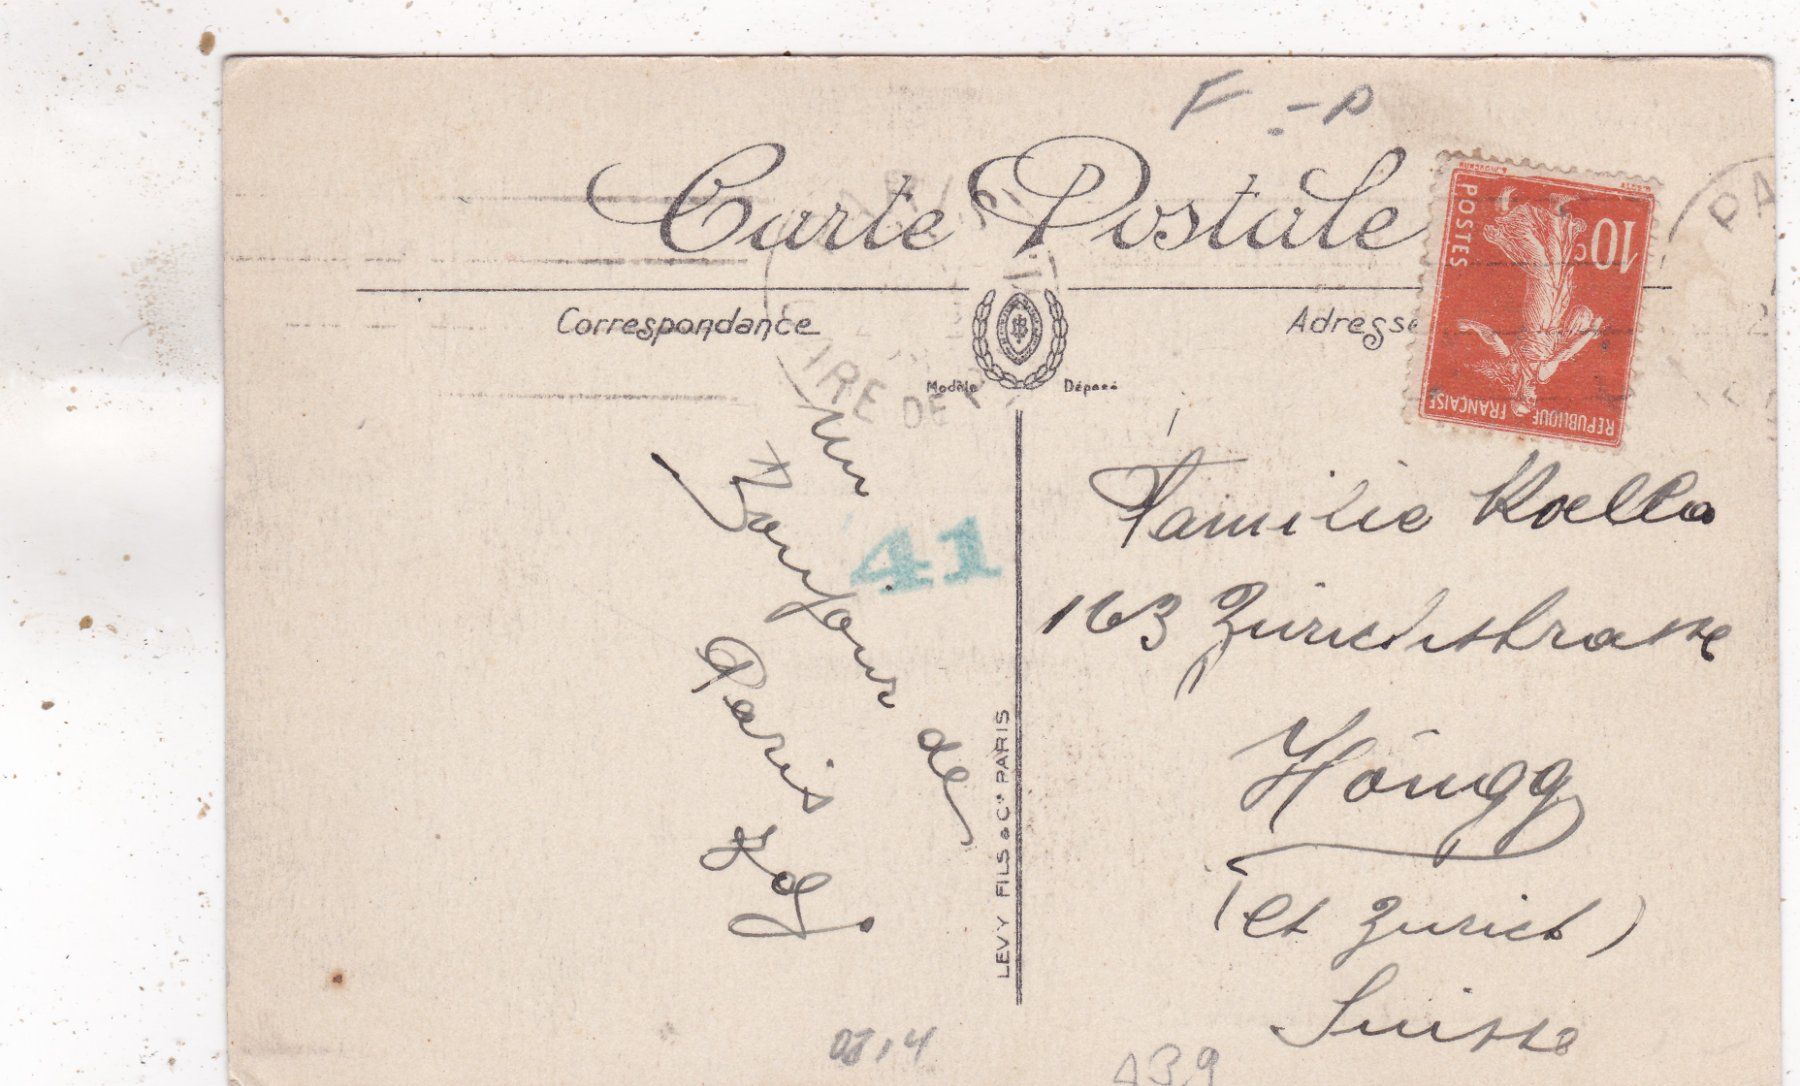 F - P
Carte Postale
Correspondance
Adresse
Modèle Déposé
POSTES
10c
REPUBLIQUE FRANÇAISE
PA
IRE DE
un
Bonjour de
Paris
41
LEVY FILS & Cie PARIS
Familie Koella
163 Zürichstrasse
Höngg
(Ct Zürich)
Suisse
139